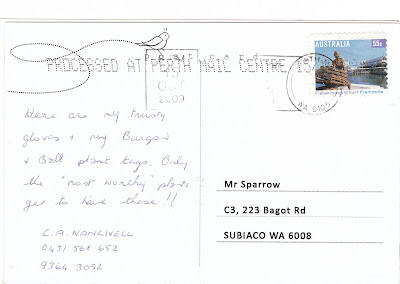 Postcard
PROCESSED AT PERTH MAIL CENTRE
OCT
2009
AUSTRALIA
55c
Fisherman's Wharf Fremantle
WA 6105
Here are my trusty
gloves + my Burgon
+ Ball plant tags. Only
the "most worthy" plants
get to have these!!
C.A. NANKIVELL
0431 568 652
9364 3052
Mr Sparrow
C3, 223 Bagot Rd
SUBIACO WA 6008